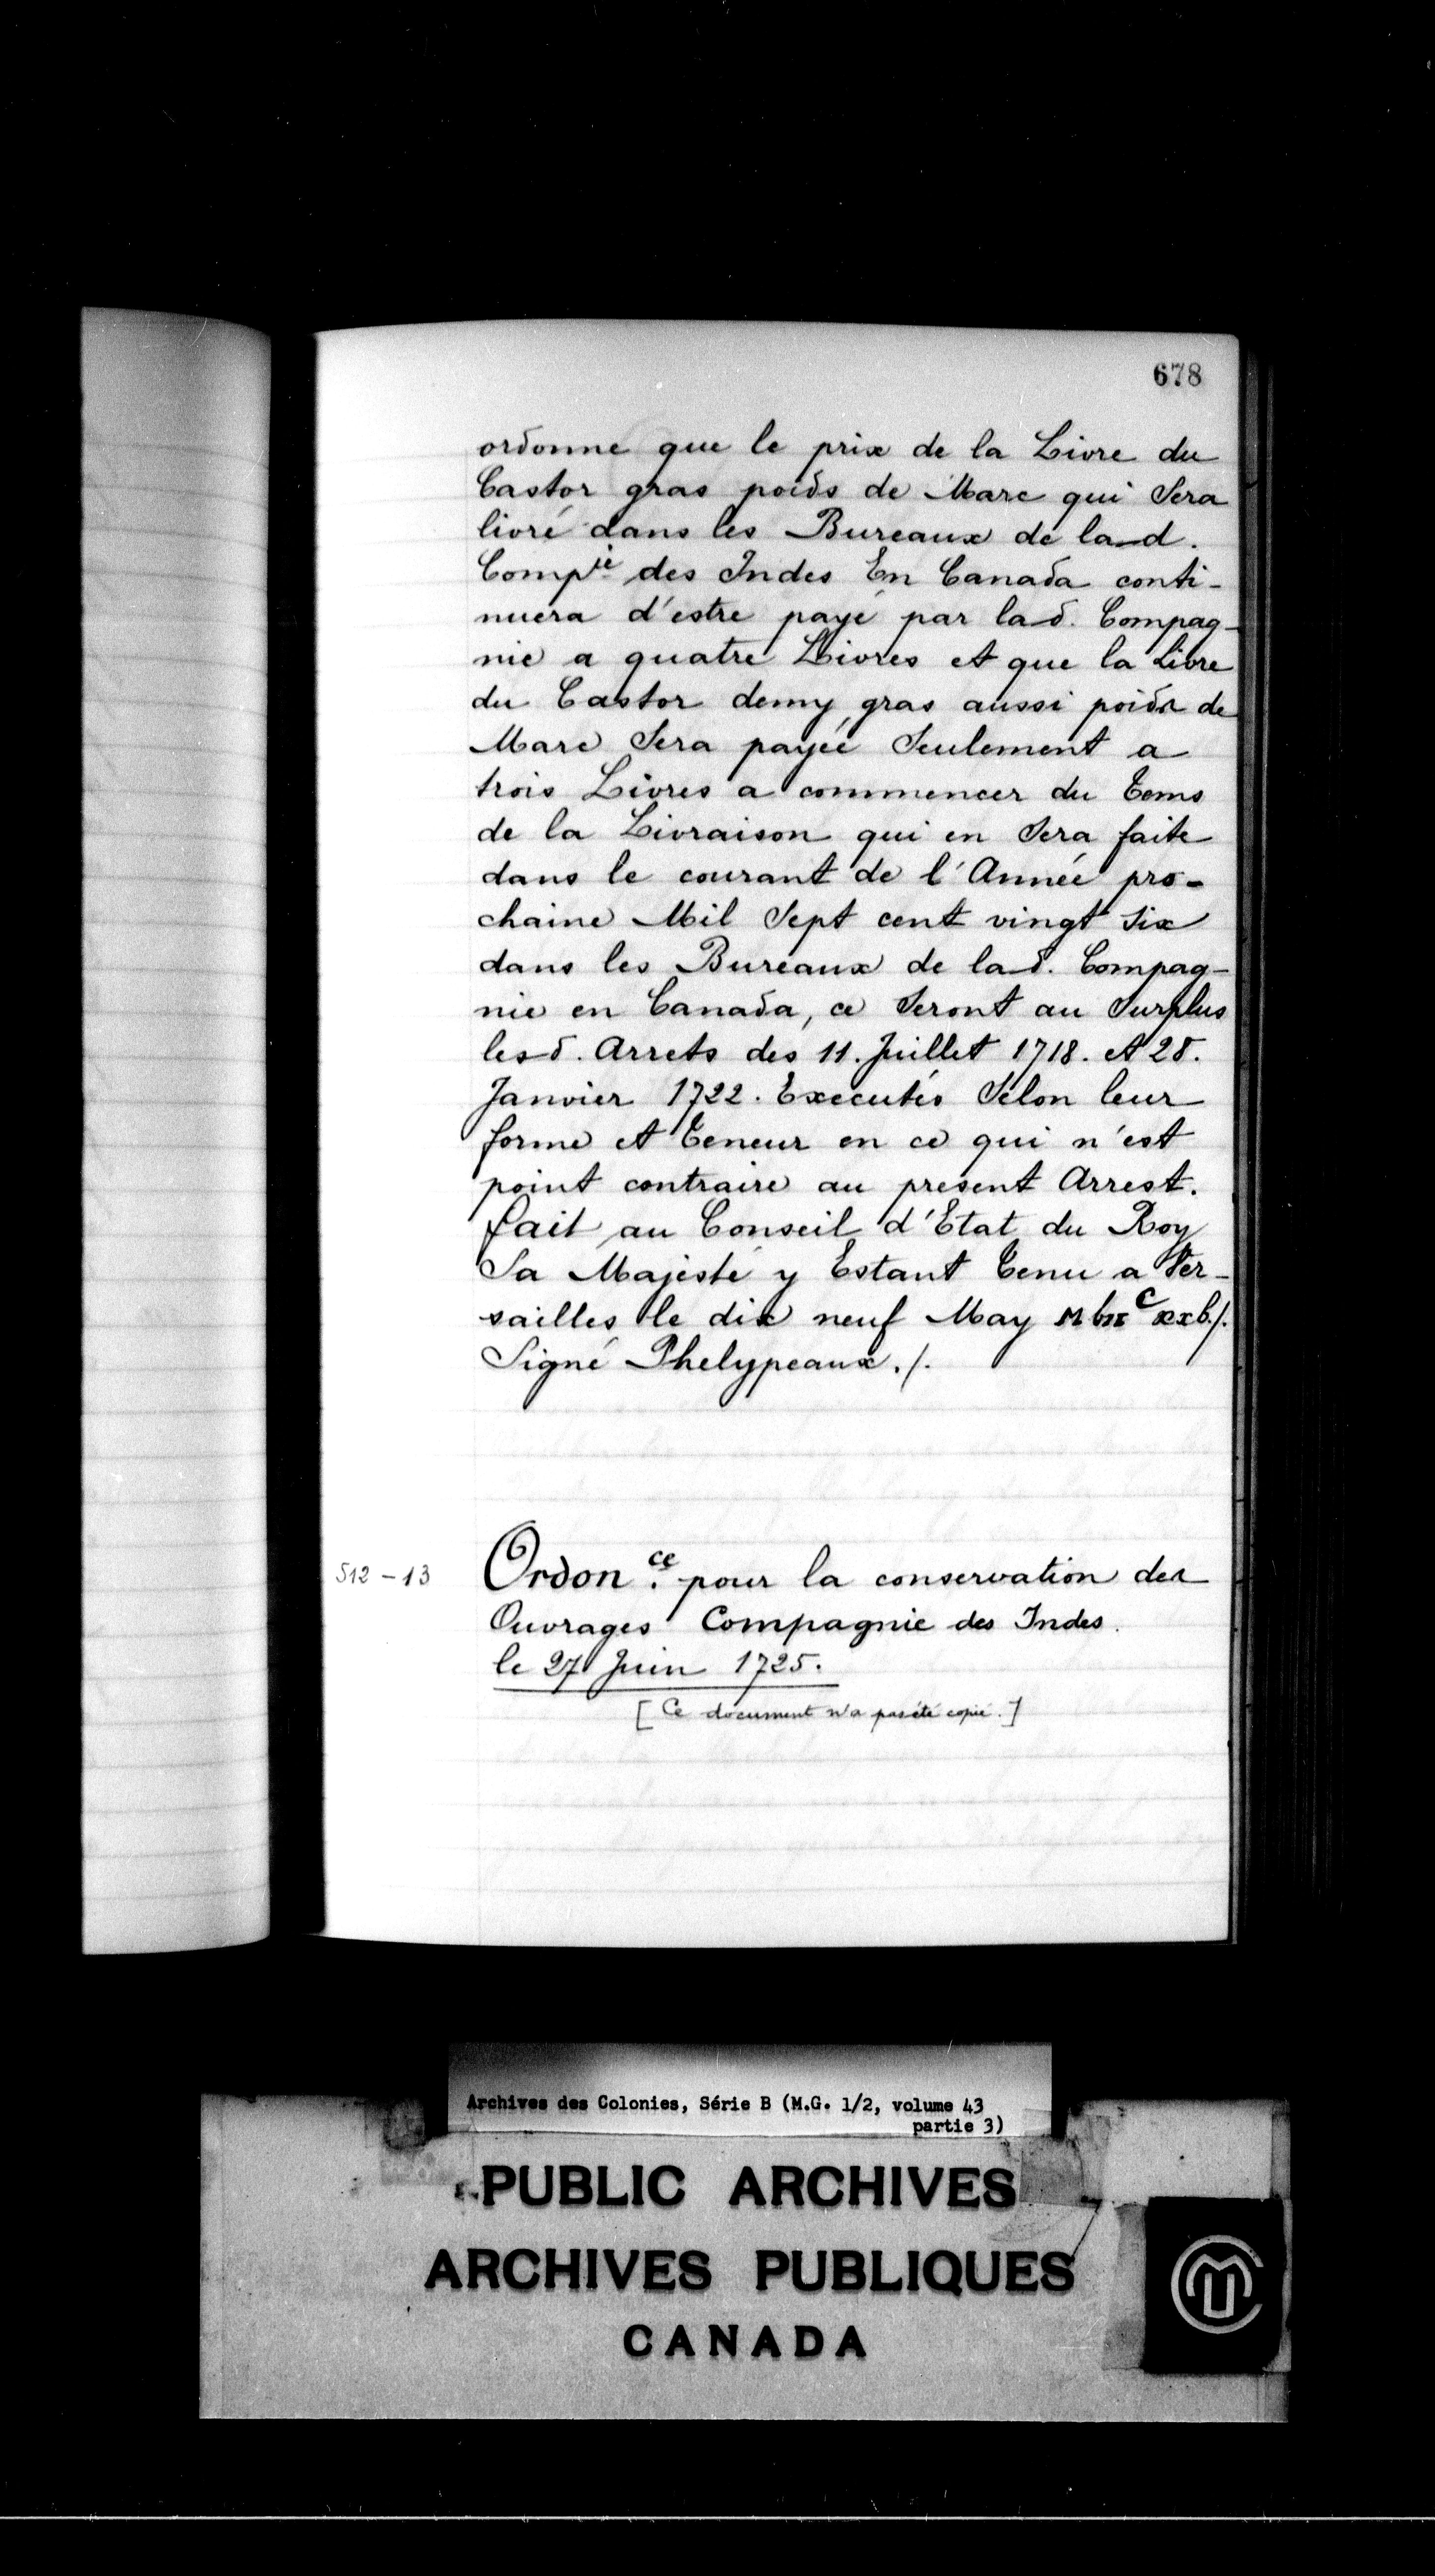 678
ordonne que le prix de la Livre du
Castor gras poids de Marc qui Sera
livré dans les Bureaux de lad.
Compie des Indes En Canada conti-
nuera d'estre payé par lad. Compag-
nie a quatre Livres et que la Livre
du Castor demy gras aussi poids de
Marc Sera payée Seulement a
trois Livres a commencer du tems
de la Livraison qui en Sera faite
dans le courant de l'Année pro-
chaine Mil Sept cent vingt Six
dans les Bureaux de lad. Compag-
nie en Canada, ce Seront au Surplus
lesd. Arrets des 11. Juillet 1718. et 28.
Janvier 1722. Executés Selon leur
forme et teneur en ce qui n'est
point contraire au present Arrest.
fait au Conseil d'Etat du Roy
Sa Majesté y Estant tenu a Ver-
sailles le dix neuf May M bII c xxb./.
Signé Phelypeaux./.
512-13
Ordon.ce pour la conservation des
Ouvrages Compagnie des Indes.
le 27 Juin 1725.
[Ce document n'a pas été copié.]
Archives des Colonies, Série B (M.G. 1/2, volume 43
partie 3)
PUBLIC ARCHIVES
ARCHIVES PUBLIQUES
CANADA